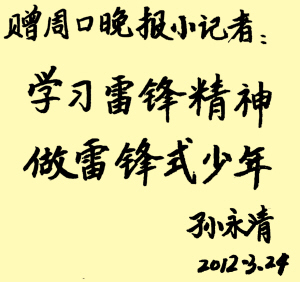 赠周口晚报小记者：
学习雷锋精神
做雷锋式少年
孙永清
2012-3.24